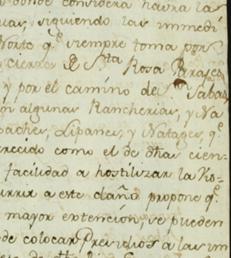 donde considera hasta la
ias, siguiendo las immedi
Norte q.e siempre toma por
cierze D S.ta Rosa
y por el camino de
on algunas Rancherias, y Na
paches, Lipanes, y Natages, q.
recido como el de otras cien
facilidad a hostilizar la
urrir a este daño propone q.e
mayor extencion, se pueden
de colocar Presidios a las im